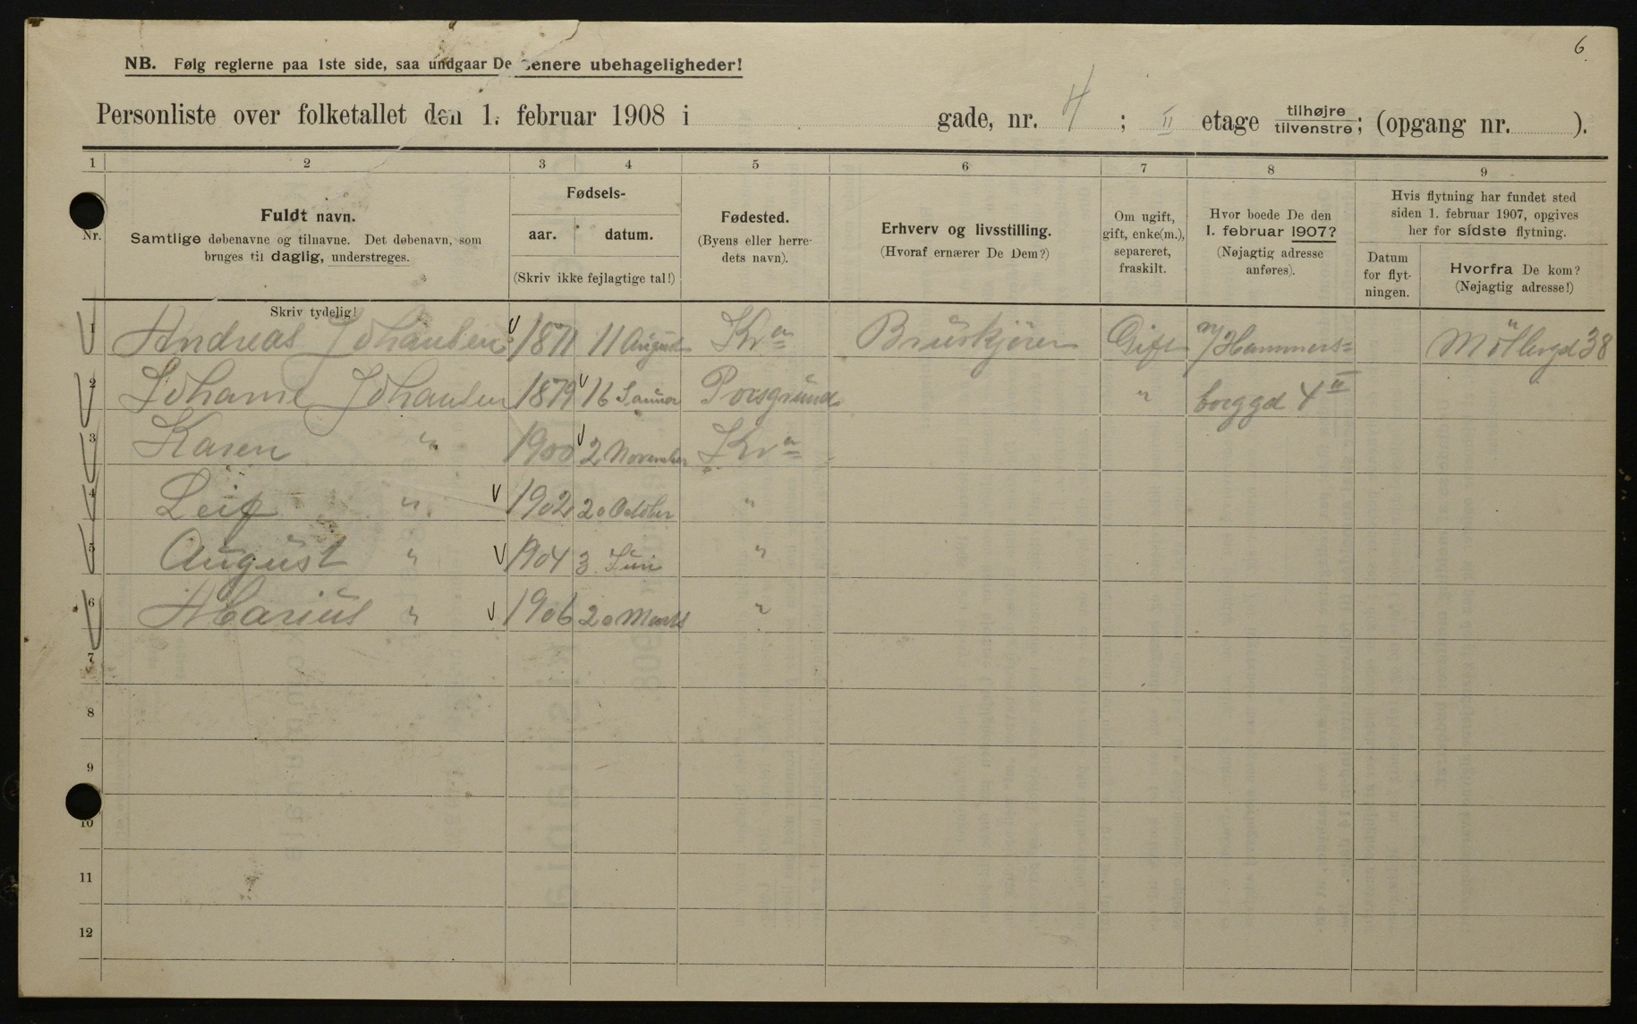 6
NB. Følg reglerne paa 1ste side, saa undgaar De senere ubehageligheder!
Personliste over folketallet den 1. februar 1908 i gade, nr. 4 ; II etage tilhøjre/tilvenstre; (opgang nr. ).
1 2 3 4 5 6 7 8 9
Nr.
Fuldt navn.
Samtlige døbenavne og tilnavne. Det døbenavn, som
bruges til daglig, understreges.
Skriv tydelig!
Fødsels-
aar. datum.
(Skriv ikke fejlagtige tal!)
Fødested.
(Byens eller herre-
dets navn).
Erhverv og livsstilling.
(Hvoraf ernærer De Dem?)
Om ugift,
gift, enke(m.),
separeret,
fraskilt.
Hvor boede De den
1. februar 1907?
(Nøjagtig adresse
anføres).
Hvis flytning har fundet sted
siden 1. februar 1907, opgives
her for sidste flytning.
Datum
for flyt-
ningen.
Hvorfra De kom?
(Nøjagtig adresse!)
1 Andreas Johansen 1871 11 August Kra Bruskjører Gift Hammers= Möllergd 38
2 Johanne Johansen 1879 16 Januar Porsgrund " borggd 4 II
3 Karen " 1900 2 November Kra
4 Leif " 1902 20 October "
5 August " 1904 3 Juni "
6 Marius " 1906 20 Marts "
7
8
9
10
11
12